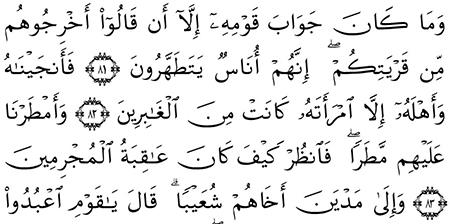 وَمَا كَانَ جَوَابَ قَوْمِهِۦٓ إِلَّآ أَن قَالُوٓا۟ أَخْرِجُوهُم
مِّن قَرْيَتِكُمْ ۖ إِنَّهُمْ أُنَاسٌ يَتَطَهَّرُونَ ٨١ فَأَنجَيْنَٰهُ
وَأَهْلَهُۥٓ إِلَّا ٱمْرَأَتَهُۥ كَانَتْ مِنَ ٱلْغَٰبِرِينَ ٨٢ وَأَمْطَرْنَا
عَلَيْهِم مَّطَرًا ۖ فَٱنظُرْ كَيْفَ كَانَ عَٰقِبَةُ ٱلْمُجْرِمِينَ
٨٣ وَإِلَىٰ مَدْيَنَ أَخَاهُمْ شُعَيْبًا ۗ قَالَ يَٰقَوْمِ ٱعْبُدُوا۟